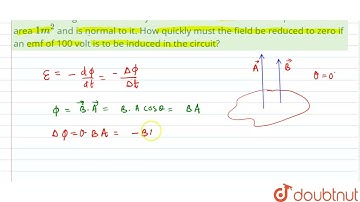 area 1m² and is normal to it. How quickly must the field be reduced to zero if
an emf of 100 volt is to be induced in the circuit?
ε = - dφ/dt = -Δφ/Δt
φ = B⃗.A⃗ = B.A cosθ = BA
Δφ = 0-BA = -BA
A⃗ B⃗ θ=0°
doubtnut